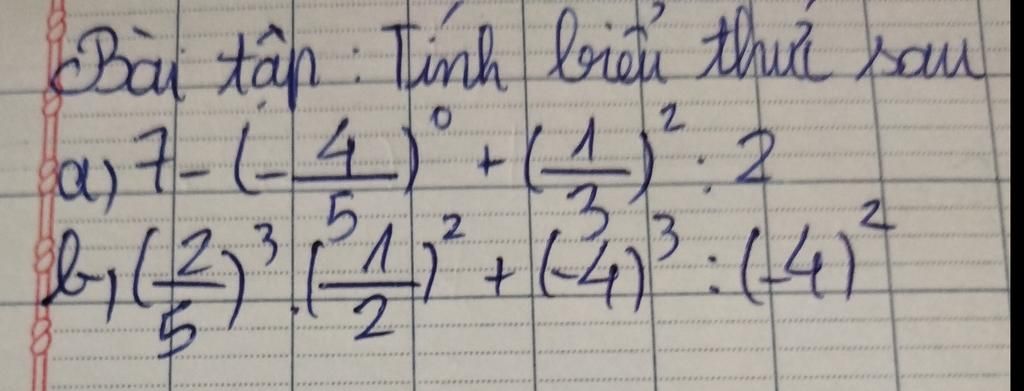 Bài tập : Tính biểu thức sau
a, 7 - (-4/5)^0 + (1/3)^2 : 2
b, (2/5)^3 . (1/2)^2 + (-4)^3 : (-4)^2